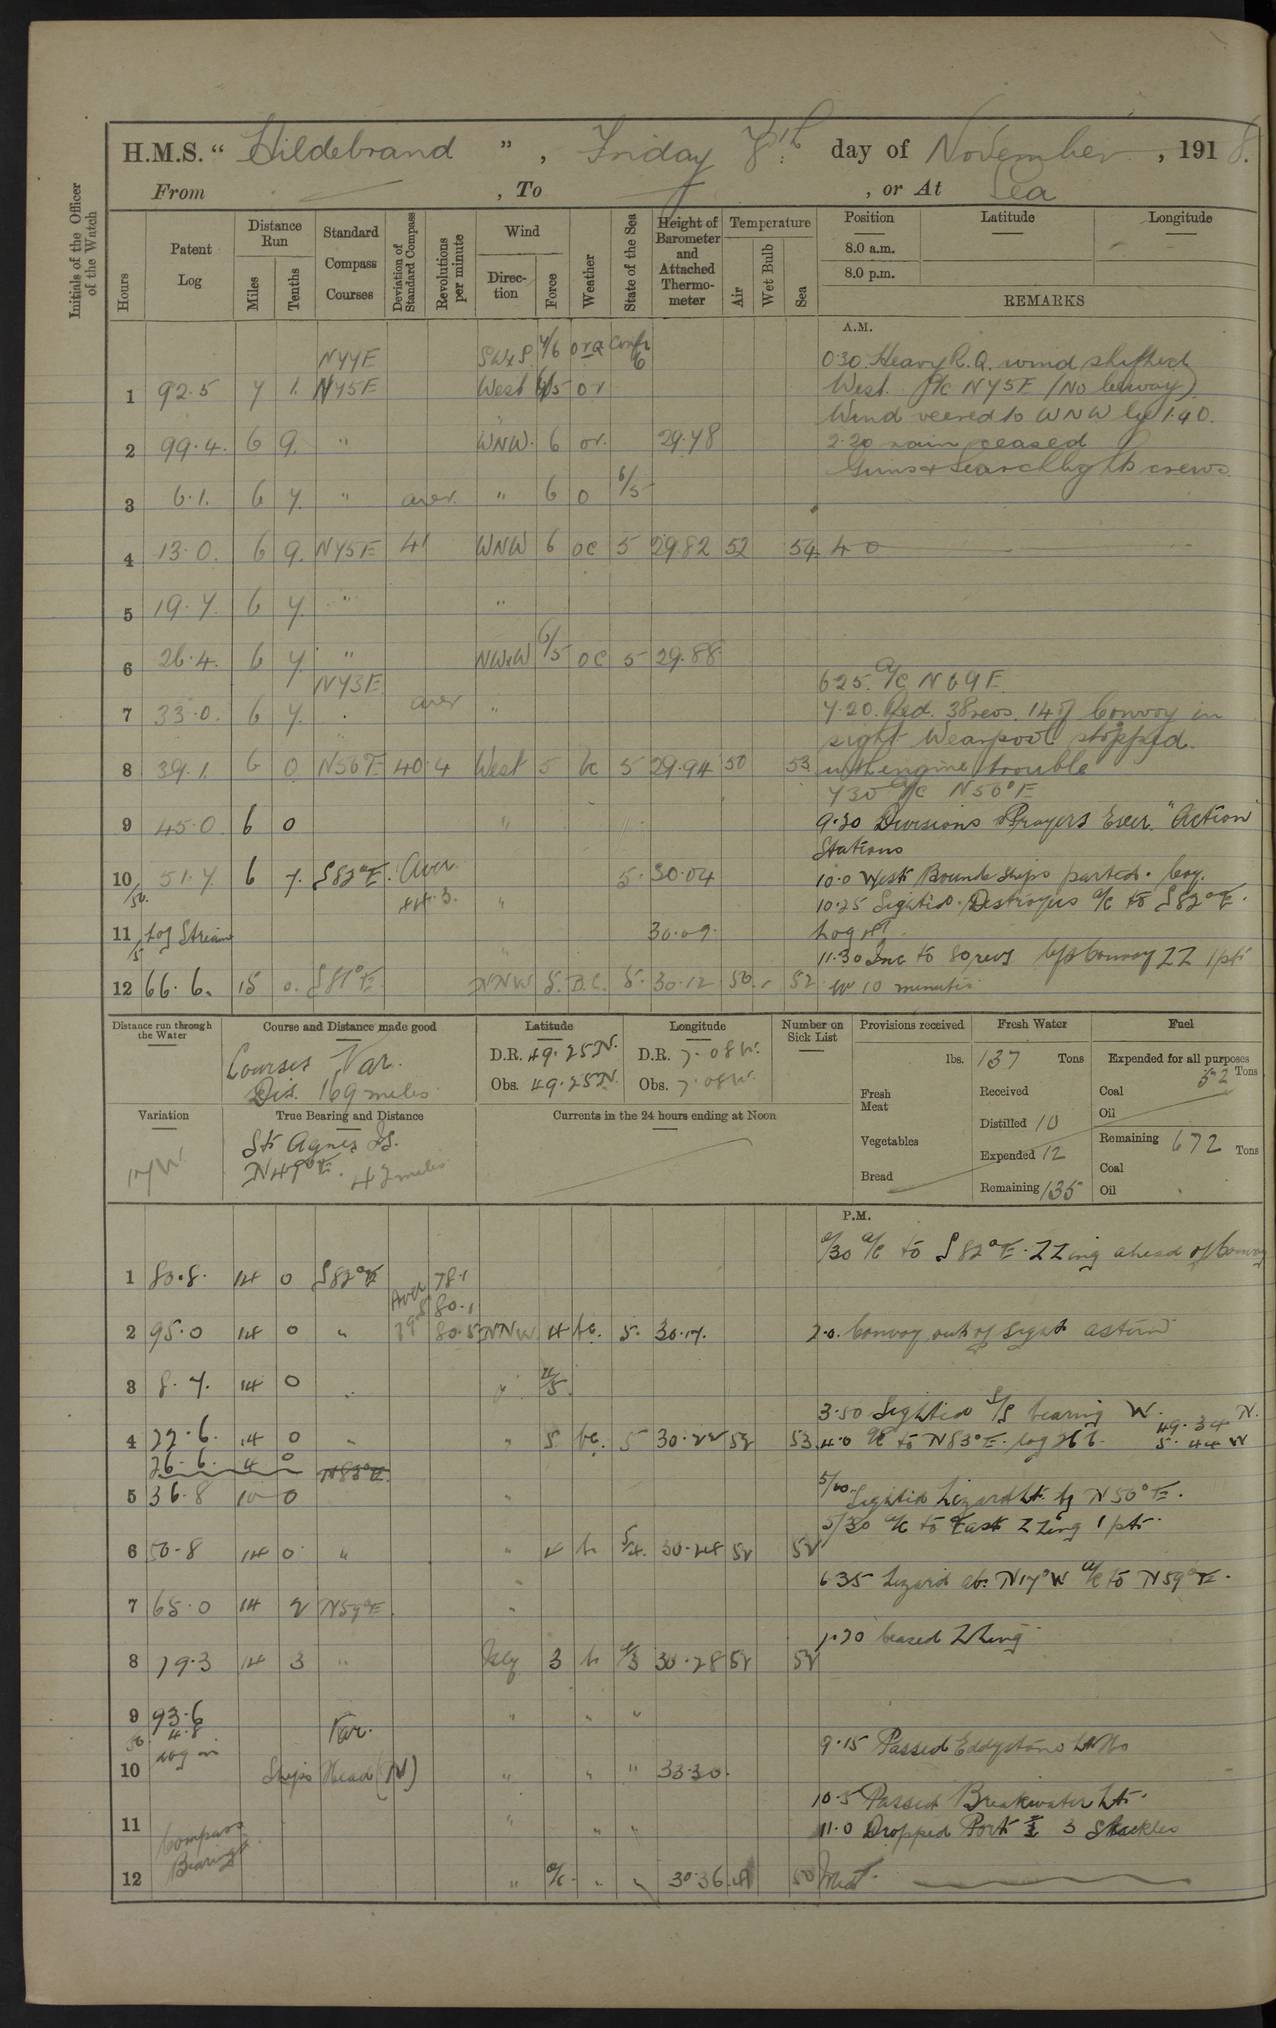 H.M.S. " Hildebrand ", Friday 8th day of November, 1918.
From , To , or At Sea
Initials of the Officer of the Watch
Hours
Patent Log
Distance Run
Miles
Tenths
Standard Compass Courses
Deviation of Standard Compass
Revolutions per minute
Wind
Direction
Force
Weather
State of the Sea
Height of Barometer and Attached Thermometer
Temperature
Air
Wet Bulb
Sea
Position Latitude Longitude
8.0 a.m.
8.0 p.m.
REMARKS
A.M.
N77E
0.30 Heavy R.Q. wind shifted
1 92.5 7 1. N75E West 6/5 or West. a/c N75E (No leeway)
Wind veered to WNW by 1.40.
2 99.4. 6 9. " WNW. 6 or. 29.78 2.20 rain ceased
Guns & Searchlights crews
3 6.1. 6 7. " aver. " 6 0 6/5
4 13.0. 6 9. N75E 41 WNW 6 oc 5 29.82 52 54 4 0
5 19.7. 6 7. " "
6 26.4. 6 7. " NWxW 6/5 oc 5 29.88
N73E 6.25. a/c N69E
7 33.0. 6 7. aver " 7.20. Red. 38 revs. 14 of Convoy in
sight Wearpool stopped.
8 39.1. 6 0 N50E 40.4 West 5 bc 5 29.94 50 53 with engine trouble
7 30 a/c N50°E
9 45.0 6 0 " 9.30 Divisions & Prayers Exer. "Action
Stations
10 51.7. 6 7. S82°E. Aver. 5. 30.04 10.0 West Bound ships parted. Coy.
10.25 Sighted Destroyers a/c to S82°E.
11 Log Stream 30.09. Log
11.30 Inc to 80 revs Convoy ZZ 1 pt
12 66.6. 15 0. S81°E. NNW 5. B.C. 5. 30.12 50. 52 10 minutes
Distance run through the Water
Course and Distance made good
Courses Var.
Dis. 169 miles
Latitude
D.R. 49.25N.
Obs. 49.25N.
Longitude
D.R. 7.08W.
Obs. 7.08W.
Number on Sick List
Provisions received
lbs.
Fresh Meat
Vegetables
Bread
Fresh Water
137 Tons
Received
Distilled 10
Expended 12
Remaining 135
Fuel
Expended for all purposes
Coal 52 Tons
Oil
Remaining 672 Tons
Coal
Oil
Variation
17W
True Bearing and Distance
St Agnes Is.
N49°E. 42 miles
Currents in the 24 hours ending at Noon
P.M.
0/30 a/c to S82°E. ZZing ahead of Convoy
1 80.8. 14 0 S82°E Aver 78.1
80.1
2 95.0 14 0 " 80.5 NNW 4 bc. 5. 30.17. 2.0. Convoy out of sight astern
3 8.7. 14 0 " " 4/5.
3.50 Sighted S/S bearing W.
4 22.6. 14 0 " " 5. bc. 5 30.22 52 53 4.0 a/c to N83°E. log 26.6. 49.34 N.
5.44 W
26.6. 4 0 N83°E.
5 36.8 10 0 " 5/10 Sighted Lizard Lt. bg N50°E.
5/30 a/c to East ZZing 1 pt.
6 50.8 14 0 " " 4 b 5/4. 30.28 52 52
6 35 Lizard ab. N17°W a/c to N59°E.
7 65.0 14 2 N59°E. "
7.20 Ceased ZZing
8 79.3 14 3 " 3 b 30.28 52 52
9 93.6 " " "
4.8 Var. 9.15 Passed Eddystone Lt Ho
Log in
10 Ships Head (N) " " " 33.30.
10.5 Passed Breakwater Lt.
11 " " " 11.0 Dropped Port 3 Shackles
Compass Bearings
12 " " " 30.36 50